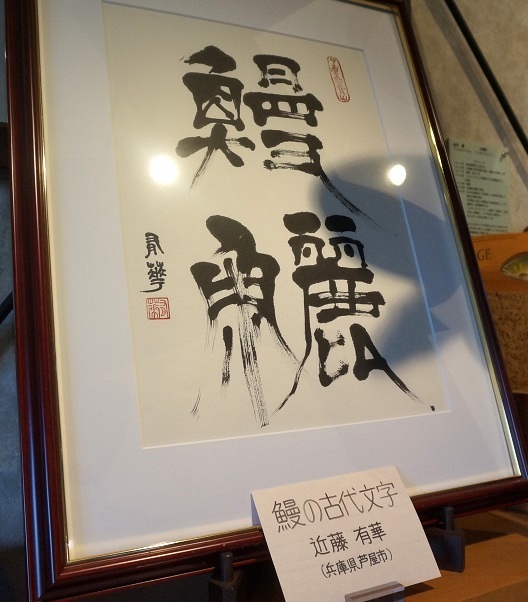 鰻
鱺
有華
鰻の古代文字
近藤 有華
(兵庫県芦屋市)